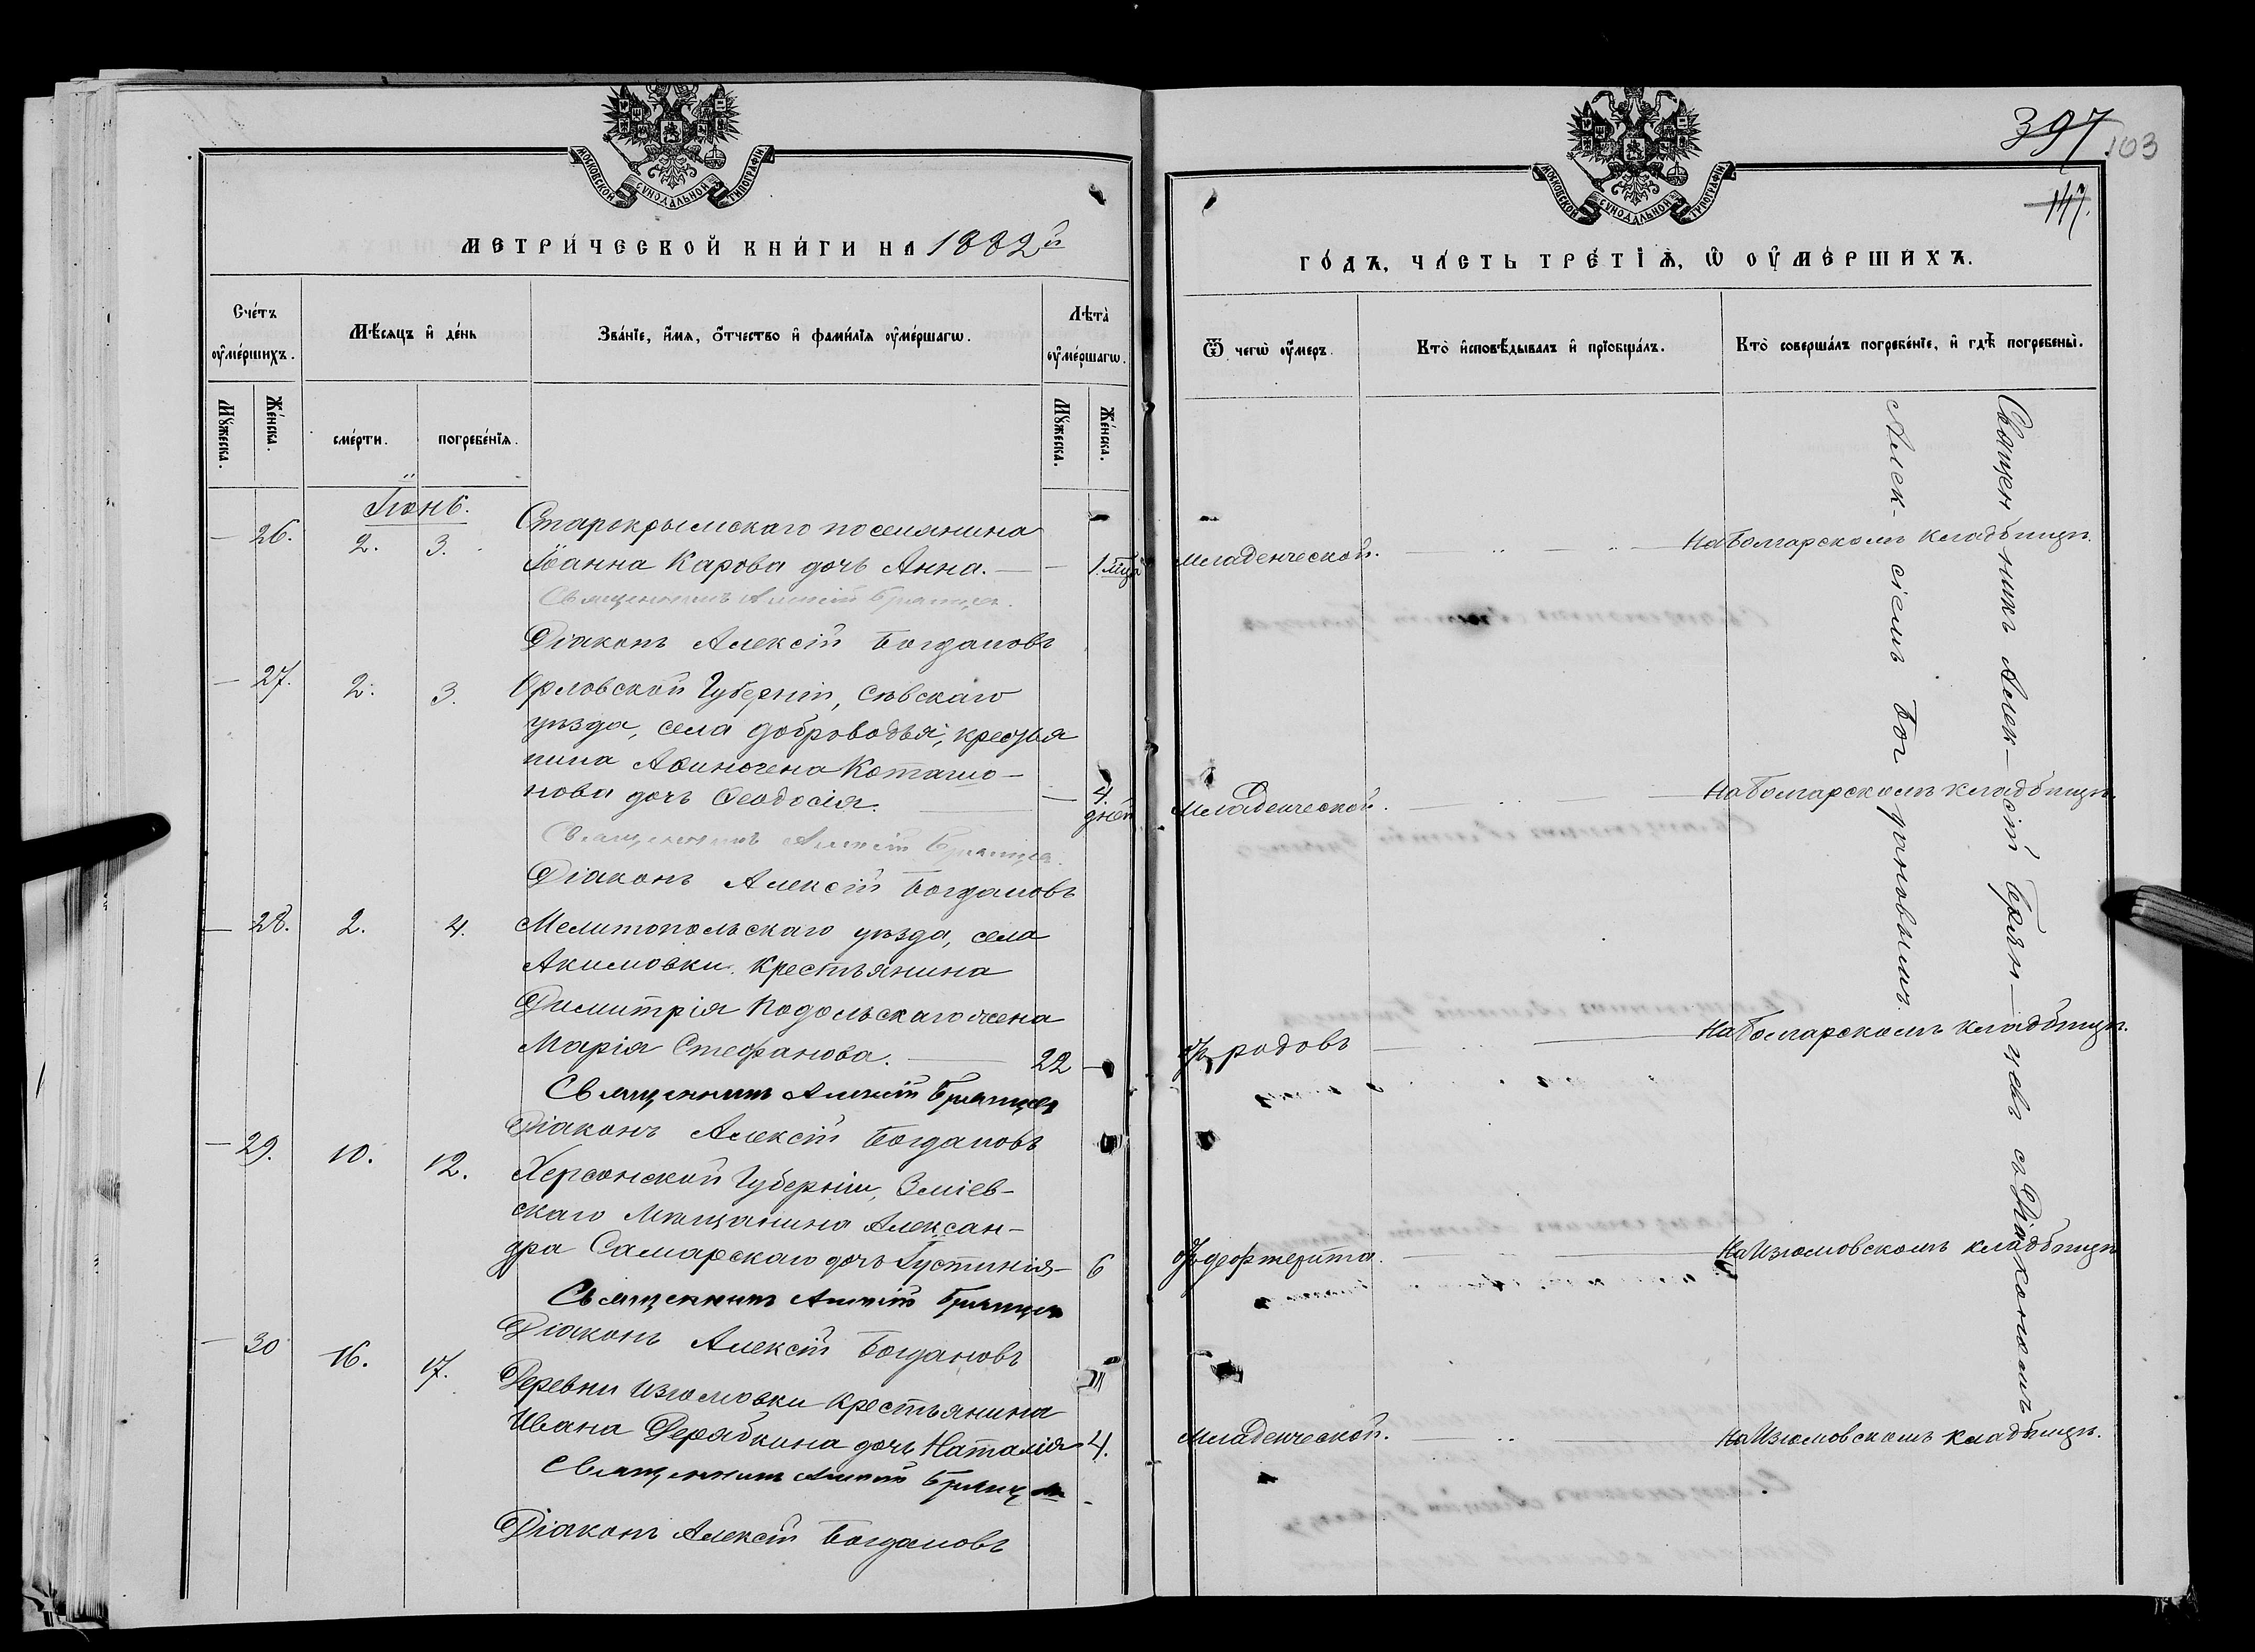 МОСКОВСКОЙ СѴНОДАЛЬНОЙ ТИПОГРАФІИ
МЕТРИ́ЧЕСКОЙ КНИ́ГИ НА 1882й
Сче́тъ ᲂу҆ме́ршихъ.
Мѣ́сяцъ и҆ де́нь
Зва́нїе, и҆́мя, ѻ҆́тчество и҆ фами́лїя ᲂу҆ме́ршагѡ.
Лѣта̀ ᲂу҆ме́ршагѡ.
Мꙋ́жеска.
Же́нска.
сме́рти.
погребе́нїя.
Мꙋ́жеска.
Же́нска.
Іюнь.
— 26. 2. 3. Старокрымскаго поселянина
Іоанна Карова дочь Анна. — — 1 мца
Священникъ Алексій Брянцев
Діаконъ Алексій Богдановъ
— 27. 2. 3. Орловской Губерніи, Сѣвскаго
уѣзда, села Доброводья, крестья
нина Аѳиногена Каташо-
нова дочь Ѳеодосія. — 4. дней
Священникъ Алексій Брянцев
Діаконъ Алексій Богдановъ
— 28. 2. 4. Мелитопольскаго уѣзда, села
Акимовки крестьянина
Димитрія Подольскаго жена
Марія Стефанова. — 22 —
Священникъ Алексій Брянцев
Діаконъ Алексій Богдановъ
— 29. 10. 12. Херсонской Губерніи, Зміев-
скаго Мѣщанина Алексан-
дра Самарскаго дочь Іустинія — 6
Священникъ Алексій Брянцев
Діаконъ Алексій Богдановъ
— 30 16. 17. Деревни Изюмовки крестьянина
Ивана Дерябкина дочь Наталія 4.
Священникъ Алексій Брянцев
Діаконъ Алексій Богдановъ
397
103
147.
МОСКОВСКОЙ СѴНОДАЛЬНОЙ ТИПОГРАФІИ
ГО́ДЪ, ЧА́СТЬ ТРЕ́ТЇѦ, Ѡ҆ ОУ҆МЕ́РШИХЪ.
Ѿ чегѡ̀ ᲂу҆́меръ.
Кто̀ и҆сповѣ́дывалъ и҆ прїобща́лъ.
Кто̀ соверша́лъ погребе́нїе, и҆ гдѣ̀ погребены̀.
Младенческой. — На Болгарскомъ кладбищѣ.
Младенческой. — На Болгарскомъ кладбищѣ.
Отъ родовъ — На Болгарскомъ кладбищѣ.
Отъ дефтерита. — На Изюмовскомъ кладбищѣ
Младенческой. — На Изюмовскомъ кладбищѣ.
Священникъ Алек-сій Брян-цевъ съ Діакономъ
Алек-сіемъ Богдановымъ.